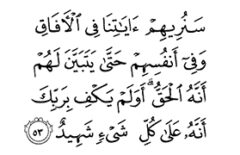 سَنُرِيهِمْ ءَايَٰتِنَا فِى ٱلْءَافَاقِ
وَفِىٓ أَنفُسِهِمْ حَتَّىٰ يَتَبَيَّنَ لَهُمْ
أَنَّهُ ٱلْحَقُّ ۗ أَوَلَمْ يَكْفِ بِرَبِّكَ
أَنَّهُۥ عَلَىٰ كُلِّ شَىْءٍ شَهِيدٌ ٥٣